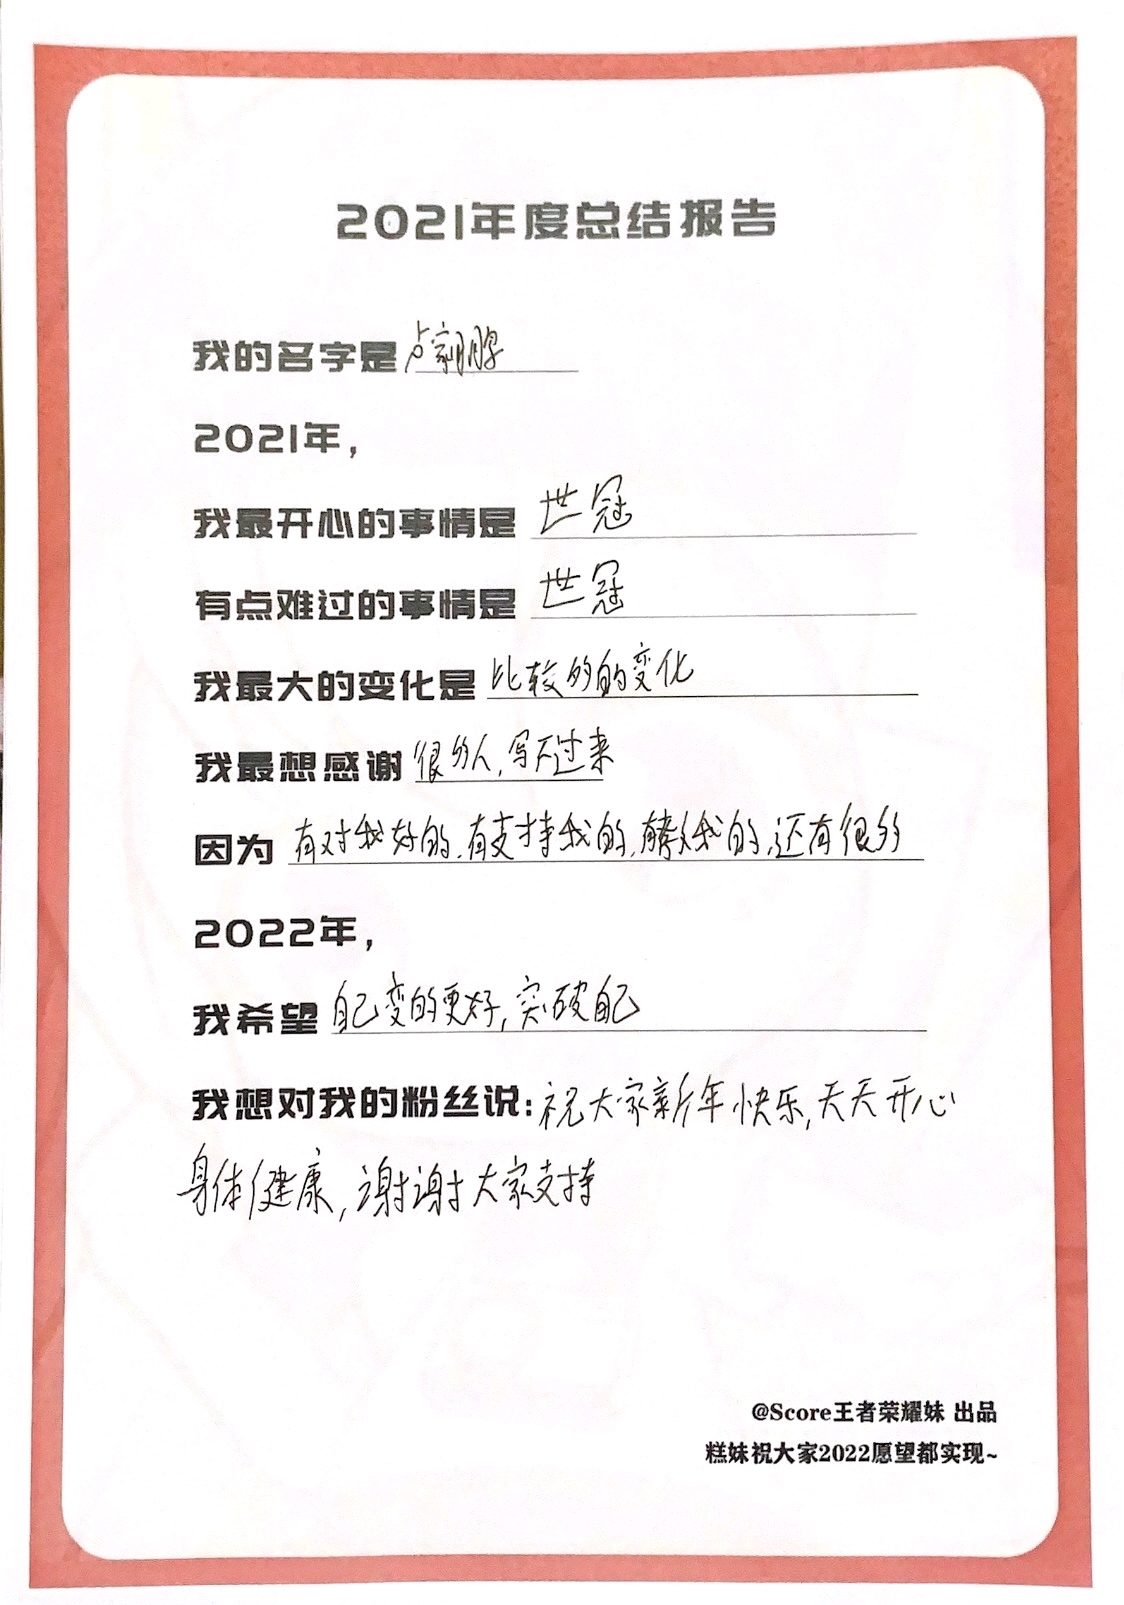 2021年度总结报告
我的名字是 卢家鹏
2021年,
我最开心的事情是 世冠
有点难过的事情是 世冠
我最大的变化是 比较多的变化
我最想感谢 很多人,写不过来
因为 有对我好的.有支持我的,有我的,还有很多
2022年,
我希望 自己变的更好,突破自己
我想对我的粉丝说:祝大家新年快乐,天天开心
身体健康,谢谢大家支持
@Score王者荣耀妹 出品
糕妹祝大家2022愿望都实现~